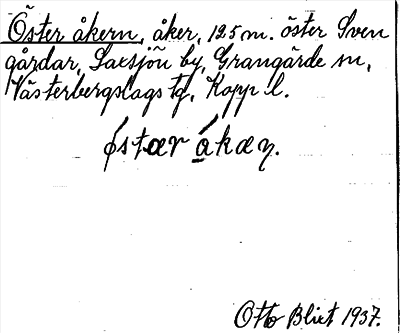 Öster åkern, åker, 125 m. öster Sven
gårdar, Laxsjön by, Grangärde sn,
Västerbergslags tg, Kopp l.
østær åkæɳ.
Otto Blixt 1937.